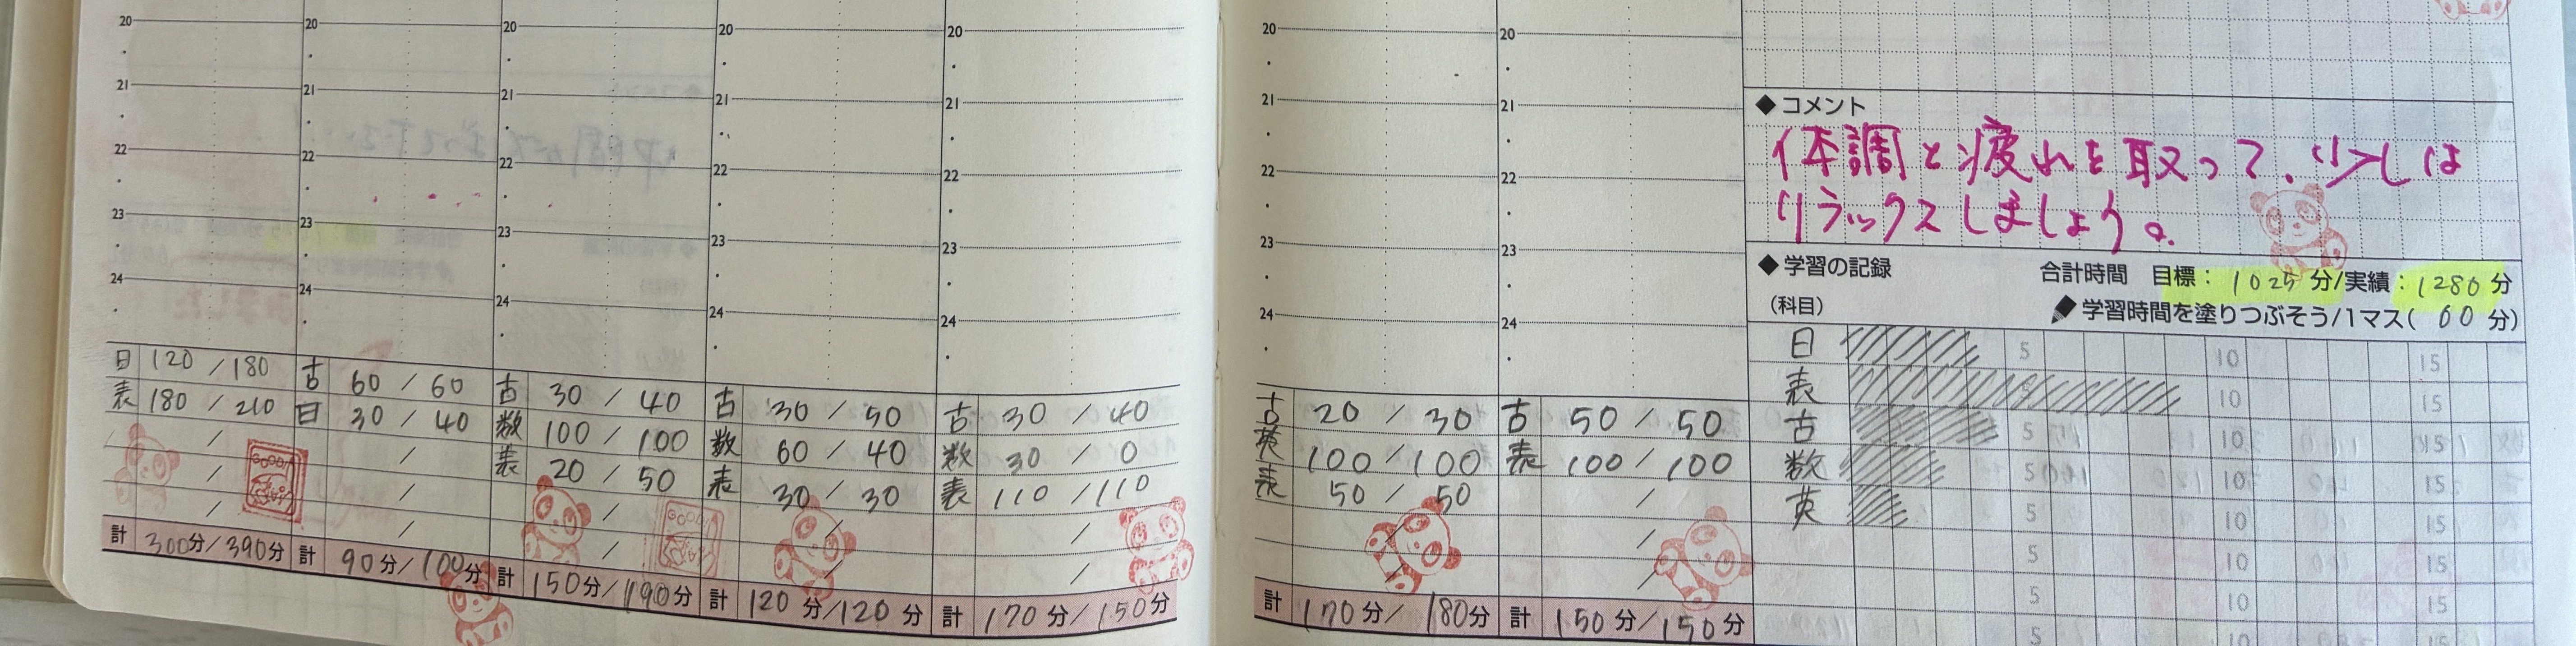 20 20 20 20 20
21 21 21 21 21
22 22 22 22 22
23 23 23 23 23
24 24 24 24 24
日 120 / 180
表 180 / 210
/
/
/
計 300分/390分
古 60 / 60
日 30 / 40
/
/
/
計 90分/100分
古 30 / 40
数 100 / 100
表 20 / 50
/
/
計 150分/190分
古 30 / 50
数 60 / 40
表 30 / 30
/
/
計 120分/120分
古 30 / 40
数 30 / 0
表 110 / 110
/
/
計 170分/150分
20 20
21 21
22 22
23 23
24 24
古 20 / 30
英 100 / 100
表 50 / 50
/
/
計 170分/180分
古 50 / 50
表 100 / 100
/
/
/
計 150分/150分
◆コメント
体調と疲れを取って、少しは
リラックスしましょう。
◆学習の記録 合計時間 目標：1025分/実績：1280分
(科目) 学習時間を塗りつぶそう/1マス(60分)
日 5 10 15
表 5 10 15
古 5 10 15
数 5 10 15
英 5 10 15
5 10 15
5 10 15
5 10 15